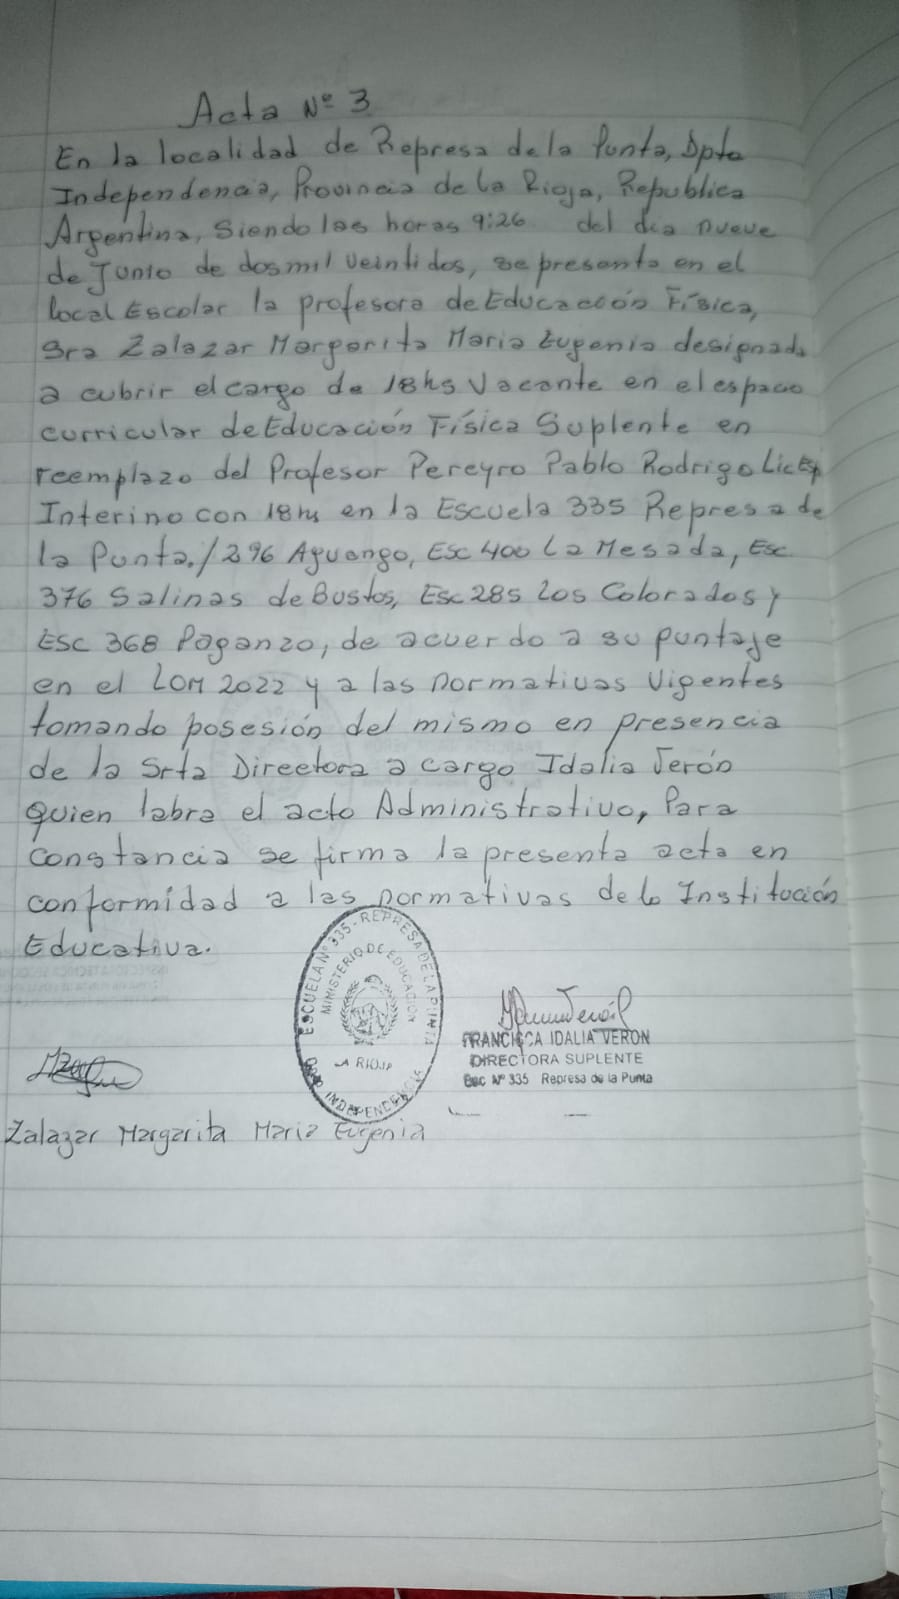 Acta Nº 3
En la localidad de Represa de la Punta, Dpto
Independencia, Provincia de La Rioja, Republica
Argentina, Siendo las horas 9:26 del dia nueve
de Junio de dos mil veintidos, se presenta en el
local Escolar la profesora de Educación Física,
Sra Zalazar Margarita Maria Eugenia designada
a cubrir el cargo de 18hs Vacante en el espacio
curricular de Educación Física Suplente en
reemplazo del Profesor Pereyro Pablo Rodrigo Lic Esp
Interino con 18hs en la Escuela 335 Represa de
la Punta./ 296 Aguango, Esc 400 La Mesada, Esc
376 Salinas de Bustos, Esc 285 Los Colorados y
Esc 368 Paganzo, de acuerdo a su puntaje
en el LOM 2022 y a las normativas Vigentes
tomando posesión del mismo en presencia
de la Srta Directora a cargo Idalia Verón
quien labra el acto Administrativo, Para
constancia se firma la presente acta en
conformidad a las normativas de la Institución
Educativa.
ESCUELA Nº 335 - REPRESA DE LA PUNTA
MINISTERIO DE EDUCACION
LA RIOJA
DPTO INDEPENDENCIA
FRANCISCA IDALIA VERON
DIRECTORA SUPLENTE
Esc Nº 335 Represa de la Punta
Zalazar Margarita Maria Eugenia